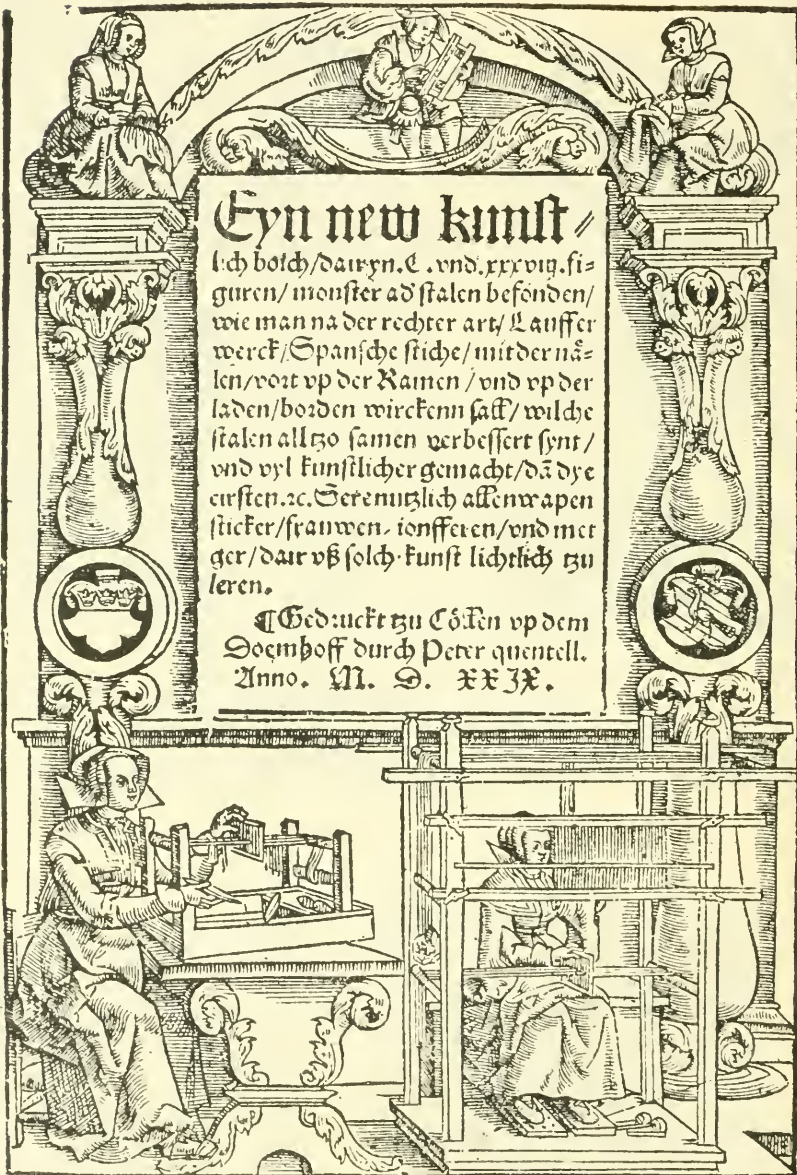 Eyn new kunst⸗
lich boich/dairyn. C. vnd. xxxviij. fi⸗
guren/ monster ad' stalen befonden/
wie man na der rechter art/ Lauffer
werck/ Spansche stiche/ mit der nå⸗
len/ vort vp der Ramen/ vnd vp der
laden/ borden wirckenn sall/ wilche
stalen all tzo samen verbessert synt/
vnd vyl kunstlicher gemacht/ dā dye
eirsten. ⁊c. Sere nutzlich allen wapen
sticker/ frauwen, ionfferen/ vnd met
ger/ dair vß solch kunst lichtlich tzu
leren.
¶ Gedruckt tzu Cöllen vp dem
Doemhoff durch Peter quentell.
Anno. M. D. XXIX.